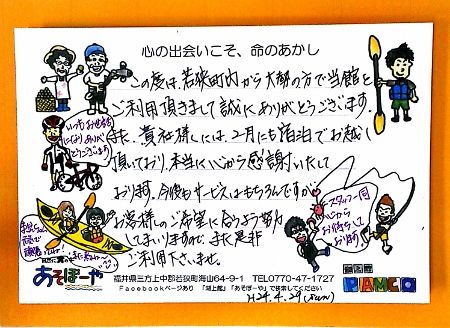 心の出会いこそ、命のあかし
この度は、若狭町内から大勢の方で当館を
ご利用頂きまして誠にありがとうございます。
また、貴社様には、2月にも宿泊でお越し
頂いており、本当に心から感謝いたして
おります。今後もサービスはもちろんですが、
お客様のご希望に合うよう努力
してまいりますので、また是非
ご利用下さいませ。
いつもお世話
になりありがとう
ございます
スタッフ一同
心から
お待ちして
おります
あそぼーや
福井県三方上中郡若狭町海山64-9-1 TEL0770-47-1727
Facebookページあり 「湖上館」「あそぼーや」で検索してください
湖上館
PAMCO
H24.4.29(sun)